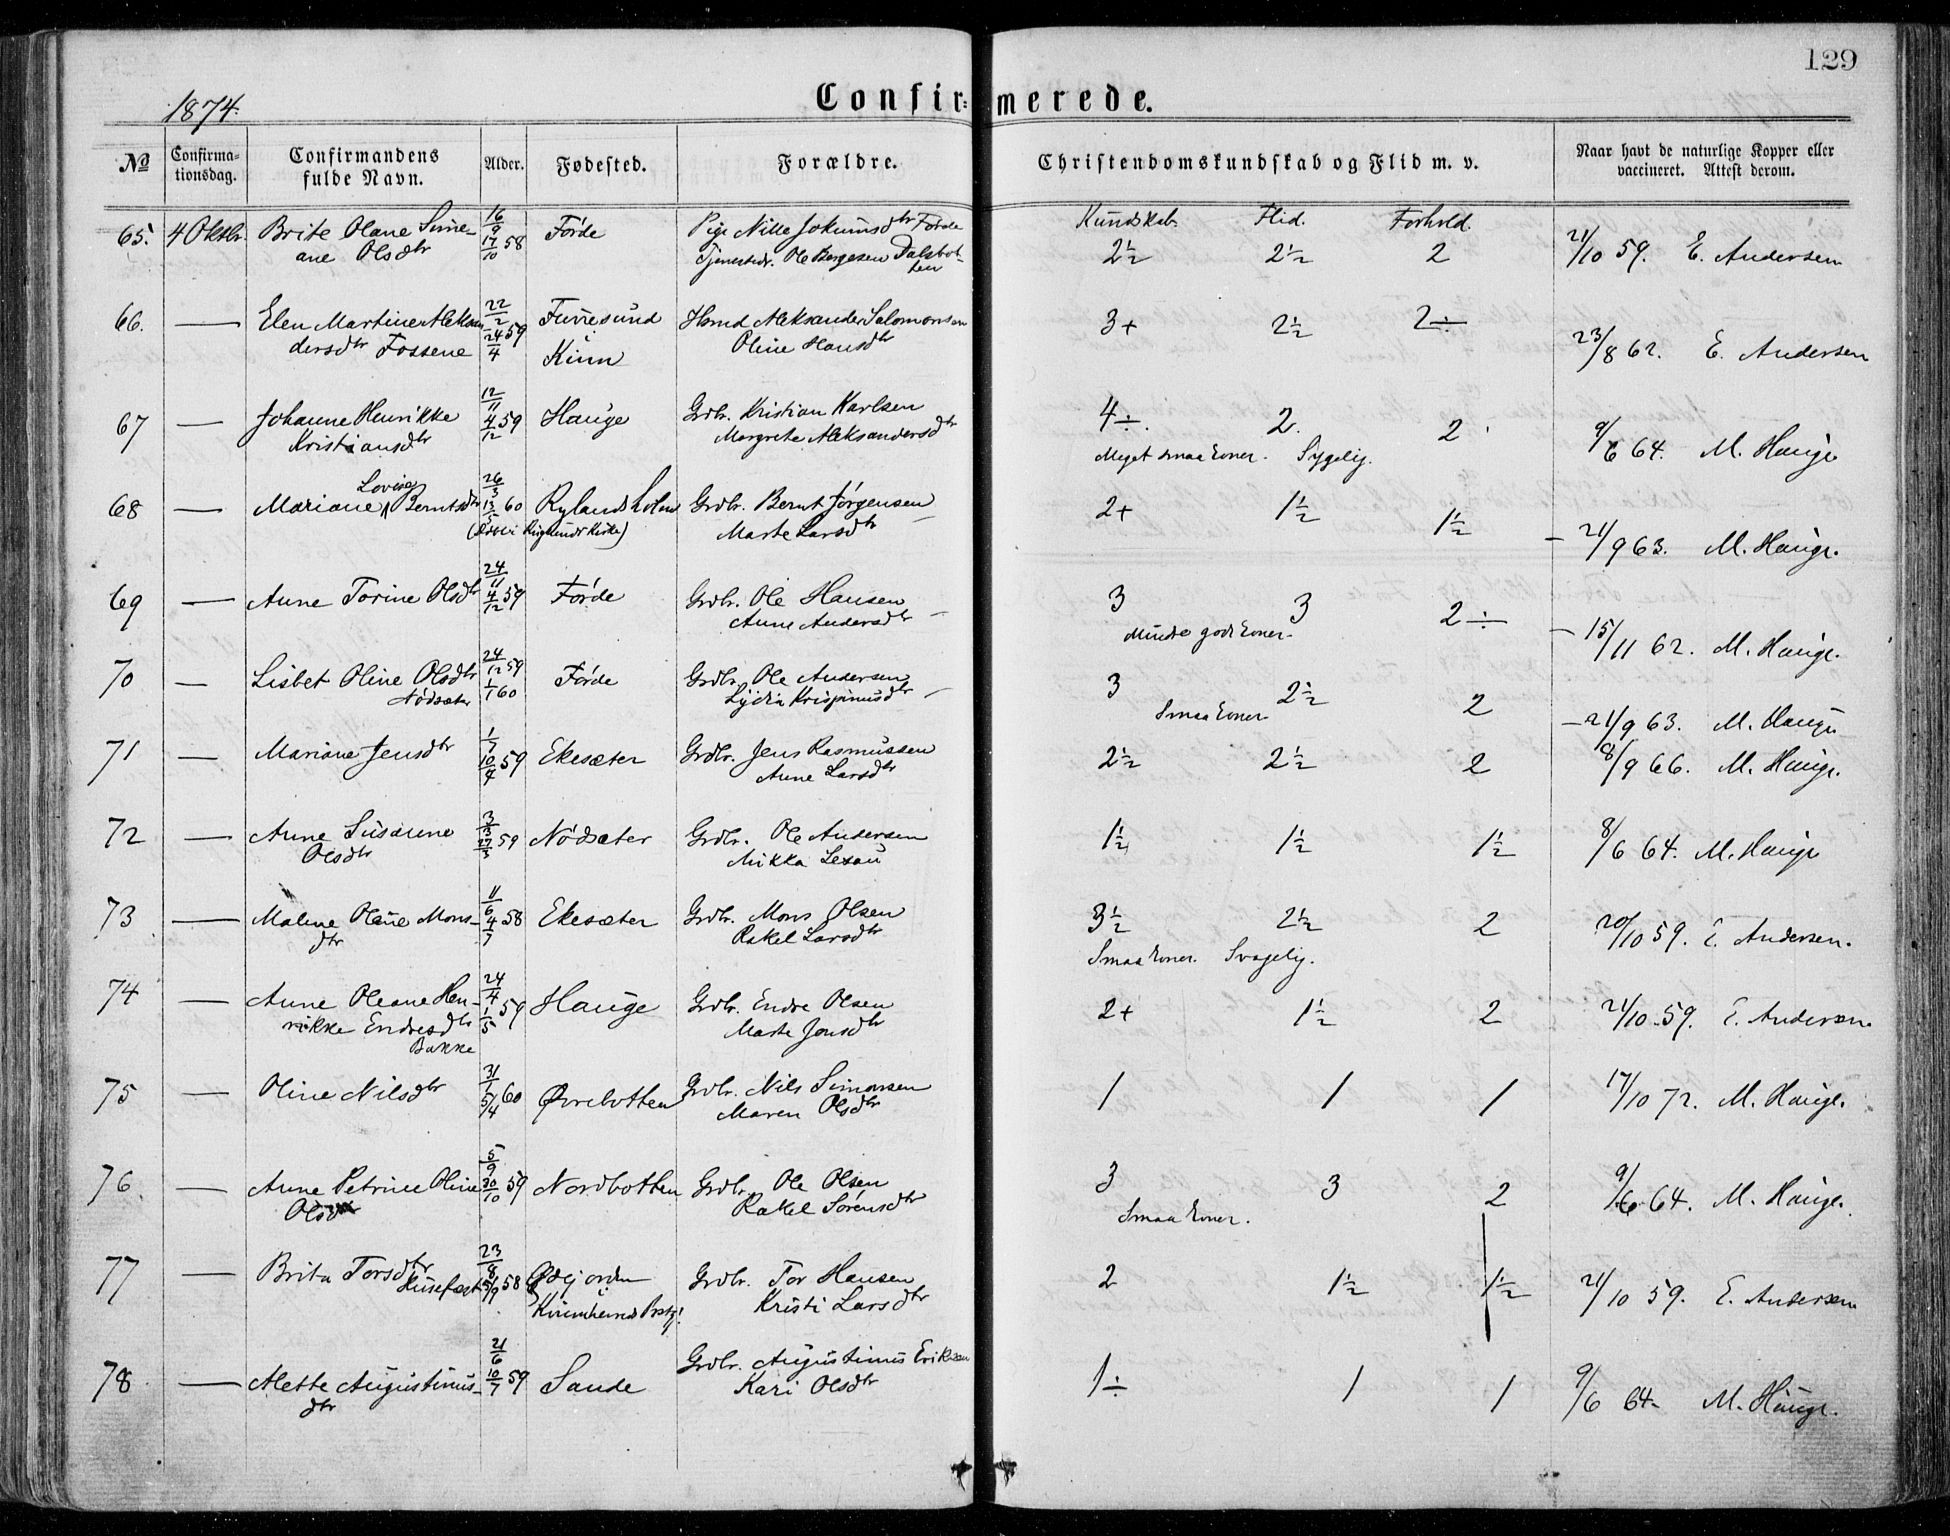 129
1874.
Confir= merede.
№ Confirma=tionsdag. Confirmandens fulde Navn. Alder. Fødested. Forældre. Christendomskundskab og Flid m. v. Naar havt de naturlige Kopper eller vaccineret. Attest derom.
Kundskab. Flid. Forhold.
65. 4 Oktbr. Brite Oline Sime- 16/9 Förde Pige Nille Jokumsdtr Förde 2½ 2½ 2 21/10 59. E. Andersen
ane Olsdtr 17/10 58 Tjenestedr. Ole Børgesen Dalsbot-
ten
66. — Elen Martine Aleksan 22/2 Furresund Hsmd Aleksander Salomonsen 3+ 2½ 2÷ 23/8 62. E. Andersen
dersdtr Fossene 24/4 59 Kinn Oline Hansdtr
67 — Johanne Henrikke 12/11 Hauge Grdbr. Kristian Karlsen 4÷. 2. 2 9/6 64. M. Hauge
Kristiansdtr 4/12 59 Margrete Aleksandersdtr Meget smaa Evner. Sygelig.
68 — Mariane Lovise Berntsdtr 26/3 13/5 60 Rylandsholm Grdbr. Bernt Jörgensen 2+ 1½ 1½ — 21/9 63. M. Hauge.
Kirke) Marte Larsdtr
69 — Anne Torine Olsdtr 24/11 4/12 59 Förde Grdbr. Ole Hansen 3 3 2÷ — 15/11 62. M. Hauge.
Anne Andersdtr Mindre gode Evner.
70 — Lisbet Oline Olsdtr 24/12 59 Förde Grdbr. Ole Andersen 3 2½ 2 — 21/9 63. M. Hauge
Nödsæter 1/1 60 Lydia Krispinusdtr Smaa Evner.
71 — Mariane Jensdtr 1/7 10/4 59 Ekesæter Grdbr. Jens Rasmussen 2½ 2½ 2 8/9 66. M. Hauge.
Anne Larsdtr
72 — Anne Susanne 3/3 27/3 59 Nödsæter Grdbr. Ole Andersen 1½ 1½ 1½ 8/6 64. M. Hauge
Olsdtr Mikka Lexau
73 — Malene Oline Mons- 11/6 4/7 58 Ekesæter Grdbr. Mons Olsen 3½ 2½ 2 20/10 59. E. Andersen.
dtr Rakel Larsdtr Smaa Evner. Svagelig.
74 — Anne Oleane Hen- 24/4 1/5 59 Hauge Grdbr. Endre Olsen 2+ 1½ 2 21/10 59. E. Andersen.
rikke Endresdtr Marte Jonsdtr
Bakke
75 — Oline Nilsdtr 31/1 5/4 60 Øvrebotten Grdbr. Nils Simonsen 1 1 1 17/10 72. M. Hauge.
Maren Olsdtr
76. — Anne Petrine Oline 5/9 30/10 59 Nordbotten Grdbr. Ole Olsen 3 3 2 9/6 64. M. Hauge.
Olsdtr Rakel Sörensdtr Smaa Evner.
77 — Brita Torsdtr 23/8 Grdbr. Tor Hansen 2 1½ 1½ 21/10 59. E. Andersen
Husefæst 5/9 58 Kristi Larsdtr
78 — Alette Augustinus- 21/6 10/7 59 Sande Grdbr. Augustinus Eriksen 1÷ 1 1 9/6 64. M. Hauge.
dtr Kari Olsdtr